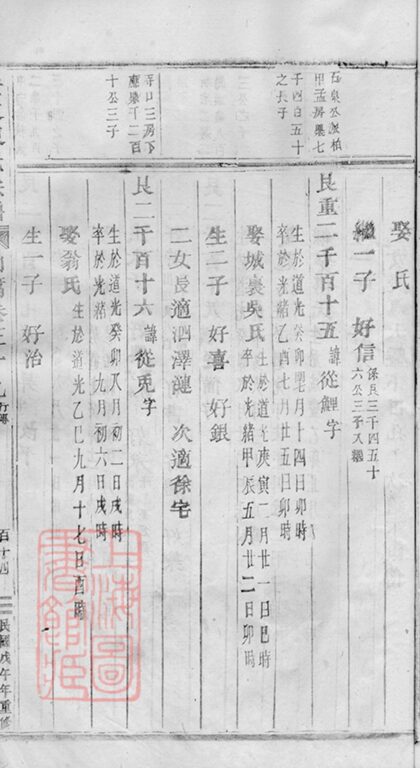 娶氏
繼一子 好信 係良三千四五十
六公三子入繼
石泉公派柏
甲孟房恩七
千四百五十
之長子
良重二千百十五 諱從鯉 字
生於道光癸卯四月十四日卯時
卒於光緒乙酉七月廿五日卯時
娶城裏吳氏 生於道光庚寅二月廿一日巳時
卒於光緒甲辰五月廿二日卯時
生二子 好喜 好銀
二女長適泗澤漣 次適徐宅
寺口三房下
應恩千二百
十公三子
良二千百十六 諱從兎 字
生於道光癸卯八月初二日戌時
卒於光緒 九月初六日戌時
娶翁氏 生於道光乙巳九月十七日酉時
生一子 好治
百十四
民國戊午年重修
上海圖書館藏